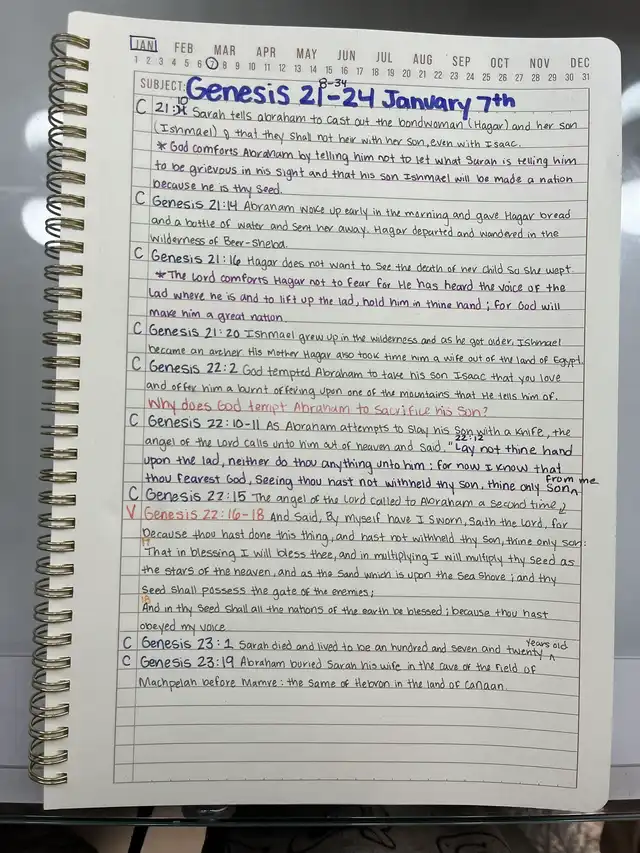 JAN FEB MAR APR MAY JUN JUL AUG SEP OCT NOV DEC
1 2 3 4 5 6 7 8 9 10 11 12 13 14 15 16 17 18 19 20 21 22 23 24 25 26 27 28 29 30 31
SUBJECT: Genesis 21-24 January 7th
8-34
10
C 21: Sarah tells abraham to cast out the bondwoman (Hagar) and her son
(Ishmael) & that they shall not heir with her son, even with Isaac.
* God comforts Abraham by telling him not to let what Sarah is telling him
to be grievous in his sight and that his son Ishmael will be made a nation
because he is thy seed.
C Genesis 21:14 Abraham woke up early in the morning and gave Hagar bread
and a bottle of water and sent her away. Hagar departed and wandered in the
wilderness of Beer-sheba.
C Genesis 21:16 Hagar does not want to see the death of her child so she wept.
* The Lord comforts Hagar not to fear for He has heard the voice of the
lad where he is and to lift up the lad, hold him in thine hand; for God will
make him a great nation.
C Genesis 21:20 Ishmael grew up in the wilderness and as he got older, Ishmael
became an archer. His Mother Hagar also took time him a wife out of the land of Egypt.
C Genesis 22:2 God tempted Abraham to take his son Isaac that you love
and offer him a burnt offering upon one of the mountains that He tells him of.
Why does God tempt Abraham to Sacrifice his Son?
C Genesis 22:10-11 As Abraham attempts to slay his son with a knife, the
angel of the Lord calls unto him out of heaven and said, "Lay not thine hand
22:12
upon the lad, neither do thou anything unto him: for now I know that
thou fearest God, Seeing thou hast not withheld thy son, thine only son
from me
C Genesis 22:15 The angel of the Lord called to Abraham a second time
V Genesis 22:16-18 And said, By myself have I sworn, saith the Lord, for
because thou hast done this thing, and hast not withheld thy son, thine only son:
17 That in blessing I will bless thee, and in multiplying I will multiply thy seed as
the stars of the heaven, and as the sand which is upon the sea shore; and thy
seed shall possess the gate of the enemies;
18
And in thy seed shall all the nations of the earth be blessed; because thou hast
obeyed my voice.
C Genesis 23:1 Sarah died and lived to be an hundred and seven and twenty years old
C Genesis 23:19 Abraham buried Sarah his wife in the cave of the field of
Machpelah before Mamre: the same of Hebron in the land of Canaan.